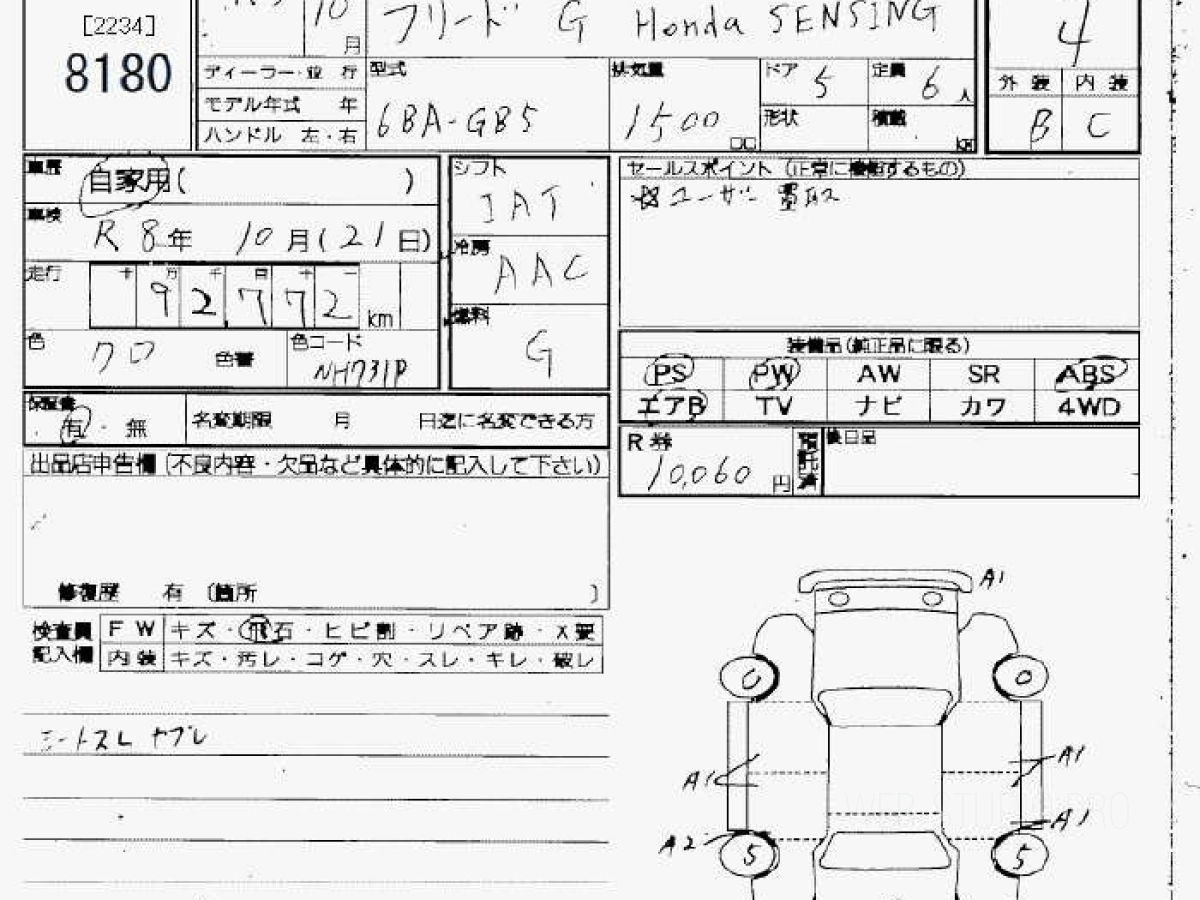 [2234]
8180
10月
フリード G Honda SENSING
4
ディーラー・並 行
モデル年式 年
ハンドル 左・右
型式
6BA-GB5
排気量
1500
CC
ドア
5
定員
6人
形状
積載
kg
外 装 内 装
B C
車歴
自家用( )
車検
R 8年 10月(21日)
走行
十 万 千 百 十 一
92,772 km
色
クロ
色番
色コード
NH731P
シフト
IAT
冷房
AAC
燃料
G
セールスポイント (正常に機能するもの)
☆ユーザー買取
装備品(純正品に限る)
PS PW AW SR ABS
エアB TV ナビ カワ 4WD
保証書
有・無
名変期限 月 日迄に名変できる方
R券
10,060円
預託済
後日品
出品店申告欄(不良内容・欠品など具体的に記入して下さい)
修復歴 有 〔箇所 〕
検査員
記入欄
FW キズ・飛石・ヒビ割・リペア跡・X要
内装 キズ・汚レ・コゲ・穴・スレ・キレ・破レ
シートスレ ヤブレ
A1
0 0
A1 A1
A1
A2
5 5